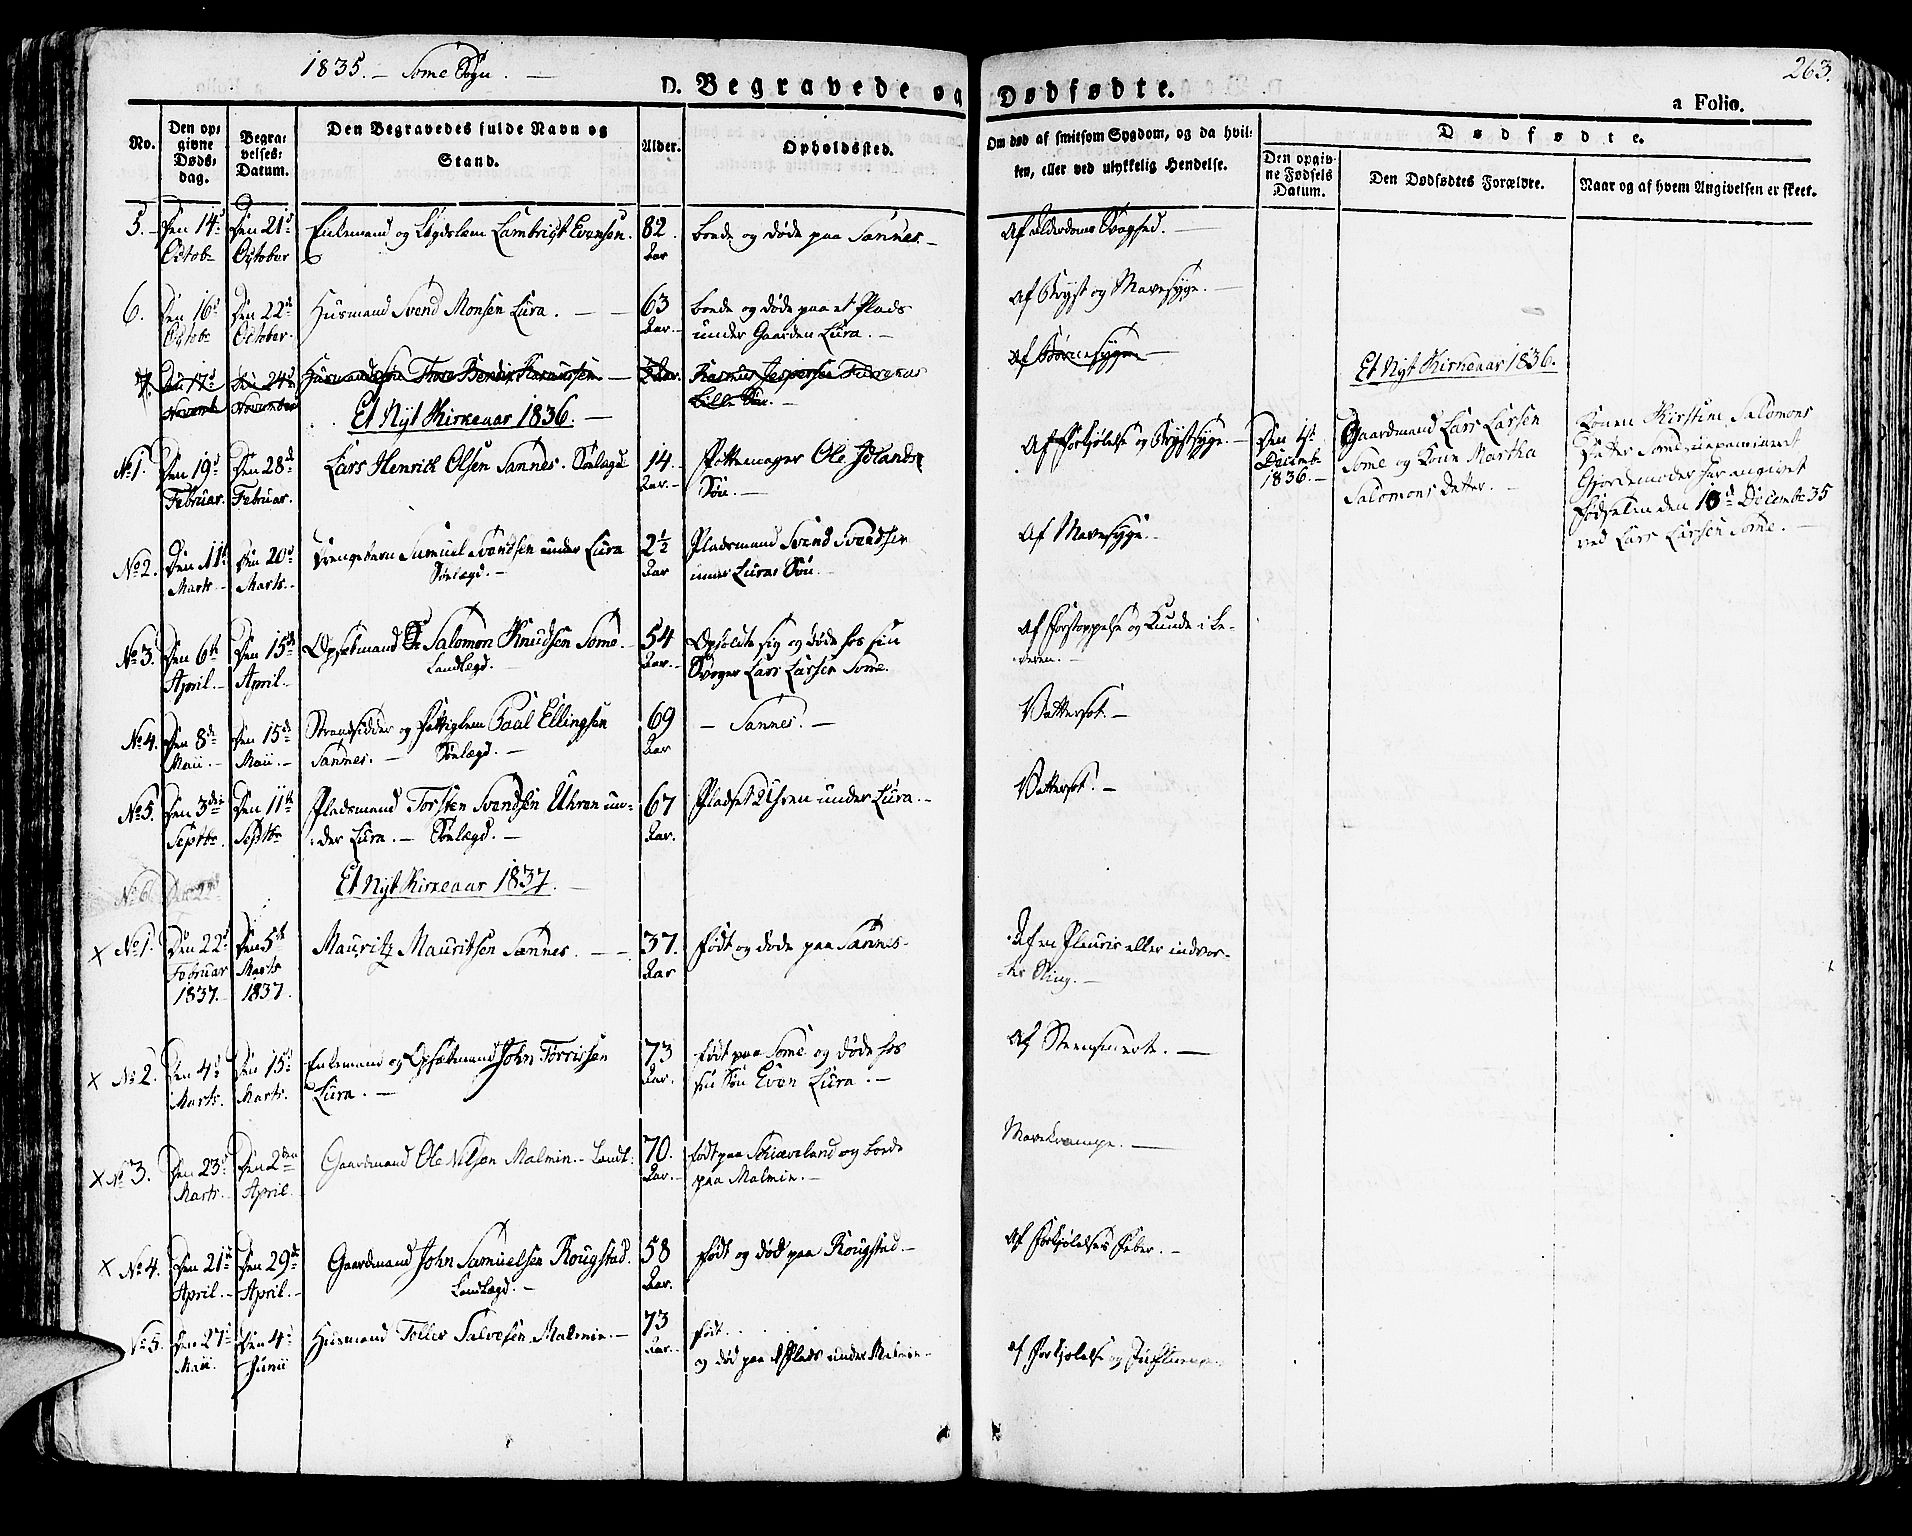 1835. – Some Sogn. –
263.
D. Begravede og Dødfødte.
a Folio.
No.
Den opgivne Dødsdag.
Begravelses-Datum.
Den Begravedes fulde Navn og Stand.
Alder.
Opholdssted.
Om død af smitsom Sygdom, og da hvilken, eller ved ulykkelig Hendelse.
Dødfødte.
Den opgivne Fødsels Datum.
Den Dødfødtes Forældre.
Naar og af hvem Angivelsen er skeet.
5. Den 14d Octob Den 21d October Enkemand og Lægdslem Lambrigt Evensen. 82 Aar boede og døde paa Sannes. – Af Alderdoms Svaghed. –
6. Den 16d Octob Den 22d October Huusmand Svend Monsen Lura. – 63 Aar. boede og døde paa et Plads
under Gaarden Lura. – Af Bryst og Mavesyge. –
7. Den 17d Novemb Den 24d November Rasmus Jespersen
Lille Søn. – Af Børnesyge –
Et Nyt Kirkeaar 1836. –
Et Nyt Kirkeaar 1836.
No 1. Den 19d Februar. Den 28d Februar. Lars Henrik Olsen Sannes. Sølægd 14. Aar. – Pottemager Ole
Søn. – Af Forkjølelse og Brystsyge. –
Den 1st Decemb 1836. –
Gaardmand Lars Larsen
Some og Kone Martha
Salomons Datter. –
Konen Kirstine Salomons
Datter Some uexamineret
Gjordemoder har angivet
Fødselen den 10d Decembr 35
ved Lars Larsen Some. –
No 2. Den 11t Marts Den 20d Marts. Drengebarn Samuel Svendsen under Lura
Sølægd. – 2½ Aar Pladsmand Svend Svendsen
under Luras Søn. – Af Mavesyge. –
No 3. Den 6te April. – Den 15de April. Opsætmand Salomon Knudsen Some. –
Landlægd. – 54 Aar. – Opholdte sig og døde hos sin
Svoger Lars Larsen Some. Af Forstoppelse og Kunde i Le-
veren. –
No 4. Den 8de Maii. – Den 15de Maii. – Strandsidder og Fattiglem Paul Ellingsen
Sannes. – Sølægd. – 69 Aar – Sannes. – Vattersot. –
No 5. Den 3die Septbr Den 11te Septbr Pladsmand Torsten Svendsen Uhren un-
der Lura. – Sølægd. – 67 Aar. Pladset Uhren under Lura. – Vattersot. –
No 6. Den 22d
Et Nyt Kirkeaar 1837. –
× No 1. Den 22d Februar 1837. Den 5te Marts 1837. Mauritz Mauritsen Sannes. – – 37. Aar Født og døde paa Sannes. Af en Pleuris eller indvor-
tes Sting. –
× No 2. Den 4d Marts. Den 15d Marts. Enkemand og Opsætmand John Torrissen
Lura. – 73 Aar. født paa Some og døde hos
sin Søn Even Lura. – Af Steensmerte. –
× No 3. Den 23d Marts. Den 2den April. Gaardmand Ole Nilsen Malmin. – Landl: 70. Aar. – født paa Skiæveland og boede
paa Malmin. – Mavekrampe. –
× No 4. Den 21d April. – Den 29d April. – Gaardmand John Samuelsen Rougstad.
Landlægd. – 58 Aar. Født og død paa Rougstad. – Af Forkjølelses Feber. –
No 5. Den 27d Maii. Den 4d Junii Huusmand Tollev Salvesen Malmin. – 73 Aar. – født
og død paa et Plads under Malmin. – af Forkjølelse og